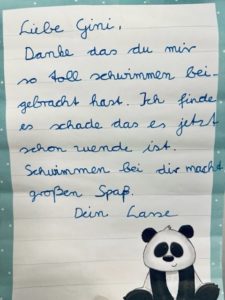 Liebe Gini,
Danke das du mir
so toll schwimmen bei-
gebracht hast. Ich finde
es schade das es jetzt
schon zuende ist.
Schwimmen bei dir macht
großen Spaß.
Dein Lasse